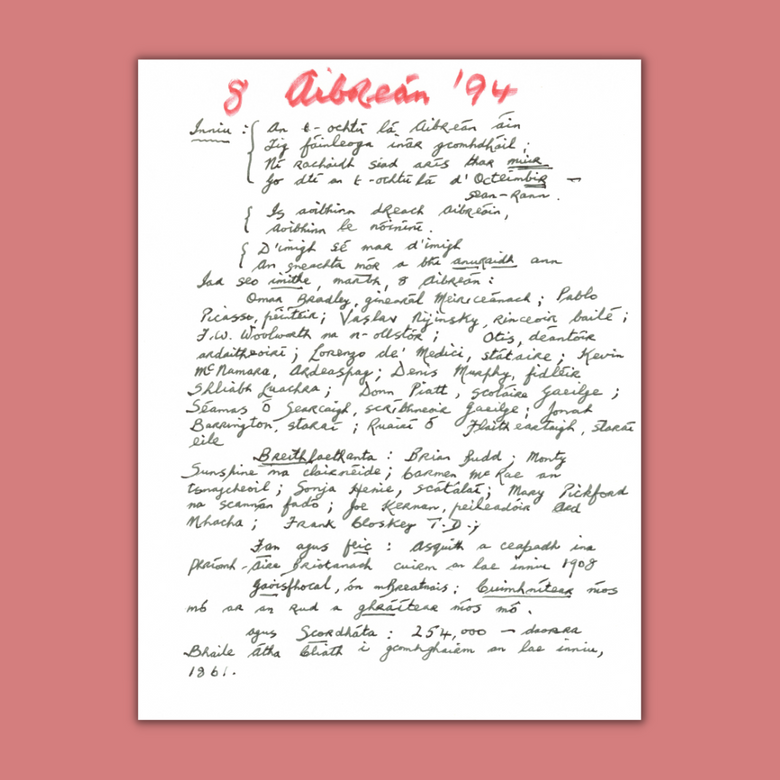 8 Aibreán '94
Inniu : An t-ochtú lá Aibreán áin
Tig fáinleoga inár gcomhdháil ;
Ní rachaidh siad arís thar muir
Go dtí an t-ochtú lá d'Octeimbir —
Sean-Rann.
Is aoibhinn dreach Aibreóin,
Aoibhinn le nóiníní.
D'imigh sé mar d'imigh
An sneachta mór a bhí anuraidh ann
Iad seo imithe, marbh, 8 Aibreán :
Omar Bradley, ginearál Meiriceánach ; Pablo
Picasso, péintéir ; Vaslav Nijinsky, rinceoir bailé ;
F.W. Woolworth na n-ollstór ; Otis, déantóir
ardaitheoirí ; Lorenzo de' Medici, státaire ; Kevin
McNamara, Ardeaspag ; Denis Murphy, fidléir
Shliabh Luachra ; Donn Piatt, scoláire Gaeilge ;
Séamas Ó Searcaigh, scríbhneoir Gaeilge ; Jonah
Barrington, staraí ; Ruairí Ó Flaitheartaigh, staraí
eile
Breithlaethanta : Brian Budd ; Monty
Sunshine na clairnéide ; Carmen McRae an
tsnagcheoil ; Sonja Henie, scátálaí ; Mary Pickford
na scannán fadó ; Joe Kernan, peileadóir Ard
Mhacha ; Frank Closkey T.D. ;
Fan agus feic : Asquith a ceapadh ina
Phríomh-Aire Briotanach cuirm an lae inniu 1908
Gaoisfhocal, ón mBreatnais ; Cuimhnítear níos
mó ar an rud a ghráítear níos mó.
agus Scordháta : 254,000 — daonra
Bhaile Átha Cliath i gcomhaireamh an lae inniu,
1861.